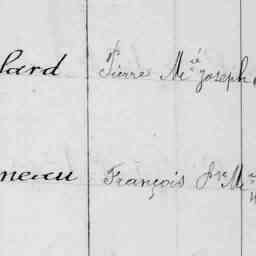 lard Pierre M.ie Joseph
neau François J.n M.ie